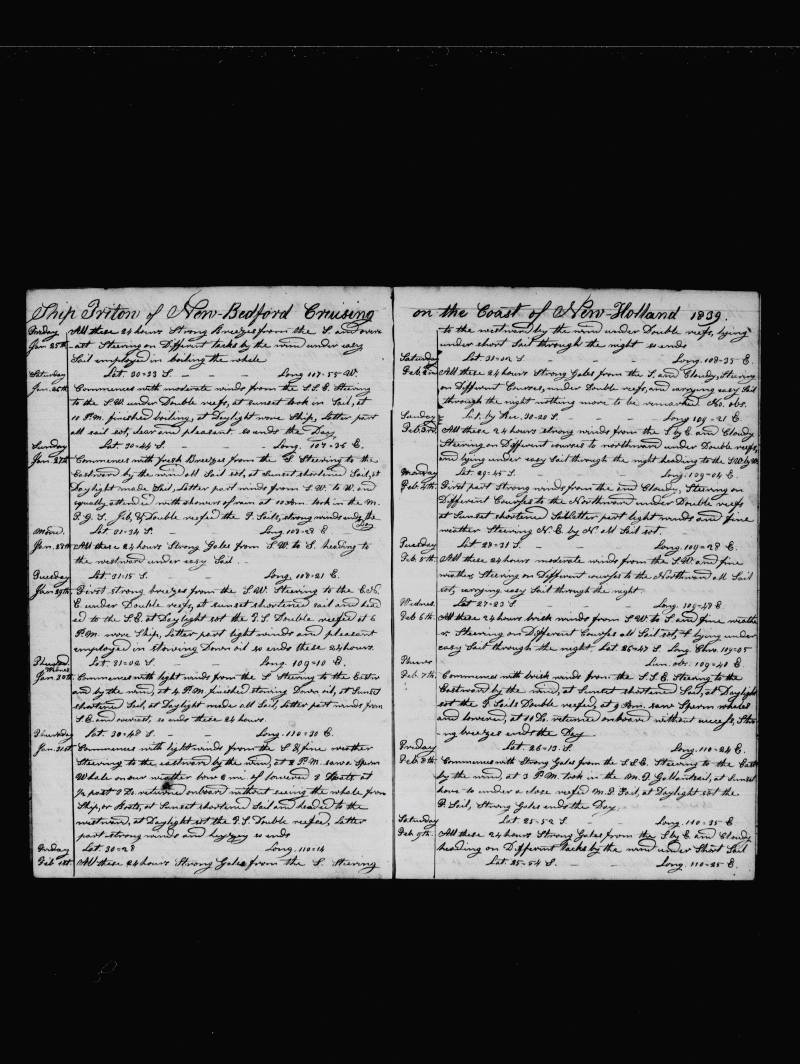 Ship Triton of New-Bedford Cruising
Friday All these 24 hours Strong Breezes from the S. and over
Jan 25th -ast Steering on Different tacks by the wind under easy
Sail employed in boiling the whale
Saturday Lat. 30-33 S. - - Long 107-55 W.
Jan. 26th Commences with moderate winds from the S.S.E. Steering
to the S.W. under Double reefs, at sunset took in Sail, at
11 P.M. finished boiling, at Daylight wore Ship, Latter part
all sail set, clear and pleasant so ends the Day
Sunday Lat. 30-44 S. - - Long. 107-36 E.
Jan 27th Commences with fresh Breezes from the S Steering to the
Eastward by the wind all Sail set, at Sunset shortened Sail, at
Daylight made Sail, Latter part winds from S.W. to W. and
squally attended with showers of rain at 10 Am. took in the M.
T. G. S. Jib, & Double reefed the T. Sails, strong winds ends the
Day
Mond. Lat. 31-34 S. - Long. 108-28 E.
Jan. 28th All these 24 hours Strong Gales from S.W. to S. heading to
the westward under easy Sail.
Tuesday Lat. 31-15 S. - Long. 108-21 E.
Jan 29th First strong breezes from the S.W. Steering to the E.N.
E under Double reefs, at sunset shortened sail and head
ed to the S.E. at Daylight set the T.S. Double reefed at 6
P.M. wore Ship, latter part light winds and pleasant
employed in stowing Down oil so ends these 24 hours.
Wednes Lat. 31-02 S. - Long. 109-10 E.
Jan. 30th Commences with light winds from the S Steering to the Eastw
ard by the wind, at 4 P.M. finished stowing Down oil, at Sunset
shortened Sail, at Daylight made all Sail, latter part winds from
S.E. and overcast, so ends these 24 hours.
Thursday Lat. 30-48 S. - - Long. 110-30 E.
Jan. 31st Commences with light winds from the S & fine weather
Steering to the eastward by the wind, at 2 P.M. saw a Sperm
Whale on our weather bow 2 mi off lowered 3 Boats at
½ past 2 Do. returned onboard without seeing the whale from
Ship, or Boats, at Sunset shortened Sail and headed to the
westward, at Daylight set the T.S. Double reefed, latter
part strong winds and hazy so ends
Friday Lat. 30-28 Long. 110-14
Feb 1st. All these 24 hours Strong Gales from the S. Steering
on the Coast of New-Holland 1839.
to the westward by the wind under Double reefs, lying
under short Sail through the night so ends
Saturday Lat. 31-02 S. - - - Long. 108-35 E.
Feb 2nd All these 24 hours Strong Gales from the S. and Cloudy, Steering
on Different Courses, under Double reefs, and carrying easy Sail
through the night nothing more to be remarked No. obs.
Sunday Lat. by Acc. 30-20 S. - - Long 109-21 E.
Feb 3rd All these 24 hours strong winds from the S by E and Cloudy
Steering on Different courses to northward under Double reefs,
and lying under easy Sail through the night heading to the S.W by W
Monday Lat. 29-45 S. - - Long. 109-04 E.
Feb 4th First part Strong winds from the and Cloudy, Steering on
Different Courses to the Northward under Double reefs
at Sunset shortened Sail latter part light winds and fine
weather Steering N.E. by N. all Sail set.
Tuesday Lat. 28-31 S. - - Long. 109-28 E.
Feb 5th. All these 24 hours moderate winds from the S.W. and fine
weather, Steering on Different courses to the Northward all Sail
set, carrying easy Sail through the night
Wednes Lat 27-23 S. - - Long. 109-48 E.
Feb 6th. All these 24 hours brisk winds from S.W. to S. and fine weathe
r. Steering on Different Courses all Sail set, & lying under
easy Sail through the night. Lat 26-47 S. Long. Chro. 109-05
Thurs Lun. obs. 109-41 E
Feb. 7th. Commences with brisk winds from the S.S.E. Steering to the
Eastward by the wind, at Sunset shortened Sail, at Daylight
set the T. Sails Double reefed, at 9 Am. saw Sperm whales
and lowered, at 11 Do. returned onboard without success, Stro
-ng breezes ends the Day
Friday Lat. 26-13 S. - Long. 110-24 E.
Feb 8th Commences with Strong Gales from the S.S.E. Steering to the East
by the wind, at 3 P.M. took in the M.T. Gallantsail, at Sunset
hove to under a close reefed M.T. Sail, at Daylight set the
T. Sail, Strong Gales ends the Day.
Saturday Lat. 25-52 S. - - Long. 110-35 E.
Feb 9th. All these 24 hours Strong Gales from the S by E and Cloudy
heading on Different tacks by the wind under Short Sail
Lat. 25-54 S. - - Long. 110-25 E.